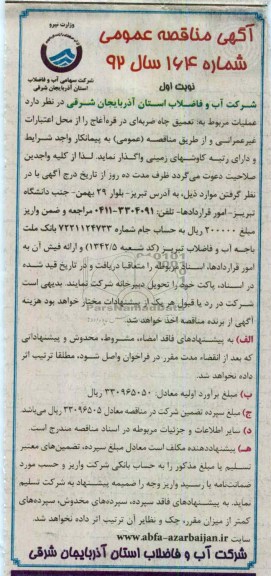 آگهی مناقصه عمومی
شماره ۱۶۴ سال ۹۲
وزارت نیرو
شرکت سهامی آب و فاضلاب
استان آذربایجان شرقی
نوبت اول
شرکت آب و فاضلاب استان آذربایجان شرقی در نظر دارد
عملیات مربوط به: تعمیق چاه ضربه‌ای در قره‌آغاج را از محل اعتبارات
غیرعمرانی و از طریق مناقصه (عمومی) به پیمانکار واجد شرایط
و دارای رتبه کاوشهای زمینی واگذار نماید. لذا از کلیه واجدین
صلاحیت دعوت می‌گردد ظرف مدت ده روز از تاریخ درج آگهی با در
نظر گرفتن موارد ذیل، به آدرس تبریز- بلوار ۲۹ بهمن- جنب دانشگاه
تبریز- امور قراردادها- تلفن: ۳۳۰۴۰۹۱-۰۴۱۱ مراجعه و ضمن واریز
مبلغ ۲۰۰۰۰۰ ریال به حساب جام شماره ۷۲۲۱۱۲۴۷۲۳ بانک ملت
باجه آب و فاضلاب تبریز (کد شعبه ۱۳۴۲/۵) و ارائه فیش آن به
امور قراردادها، اسناد مربوطه را متعاقبا دریافت و در تاریخ قید شده
در اسناد، پاکت خود را تحویل دبیرخانه شرکت نمایند. بدیهی است
شرکت در رد یا قبول هر یک از پیشنهادات مختار خواهد بود هزینه
آگهی از برنده مناقصه اخذ خواهد شد.
الف) به پیشنهادهای فاقد امضاء، مشروط، مخدوش و پیشنهاداتی
که بعد از انقضاء مدت مقرر در فراخوان واصل شود، مطلقا ترتیب اثر
داده نخواهد شد.
ب) مبلغ برآورد اولیه معادل: ۳۳۰۹۶۵۰۵۰ ریال
ج) مبلغ سپرده تضمین شرکت در مناقصه معادل ۳۳۰۹۶۵۰۵ ریال می‌باشد.
د) سایر اطلاعات و جزئیات مربوطه در اسناد مناقصه مندرج است.
هـ) پیشنهاددهنده مکلف است معادل مبلغ سپرده، تضمین‌های معتبر
تسلیم یا مبلغ مذکور را به حساب بانکی شرکت واریز و حسب مورد
ضمانت‌نامه یا رسید واریز وجه را ضمیمه پیشنهاد به شرکت تسلیم
نماید. به پیشنهادهای فاقد سپرده، سپرده‌های مخدوش، سپرده‌های
کمتر از میزان مقرر، چک و نظایر آن ترتیب اثر داده نخواهد شد.
سایت www.abfa-azarbaijan.ir
شرکت آب و فاضلاب استان آذربایجان شرقی